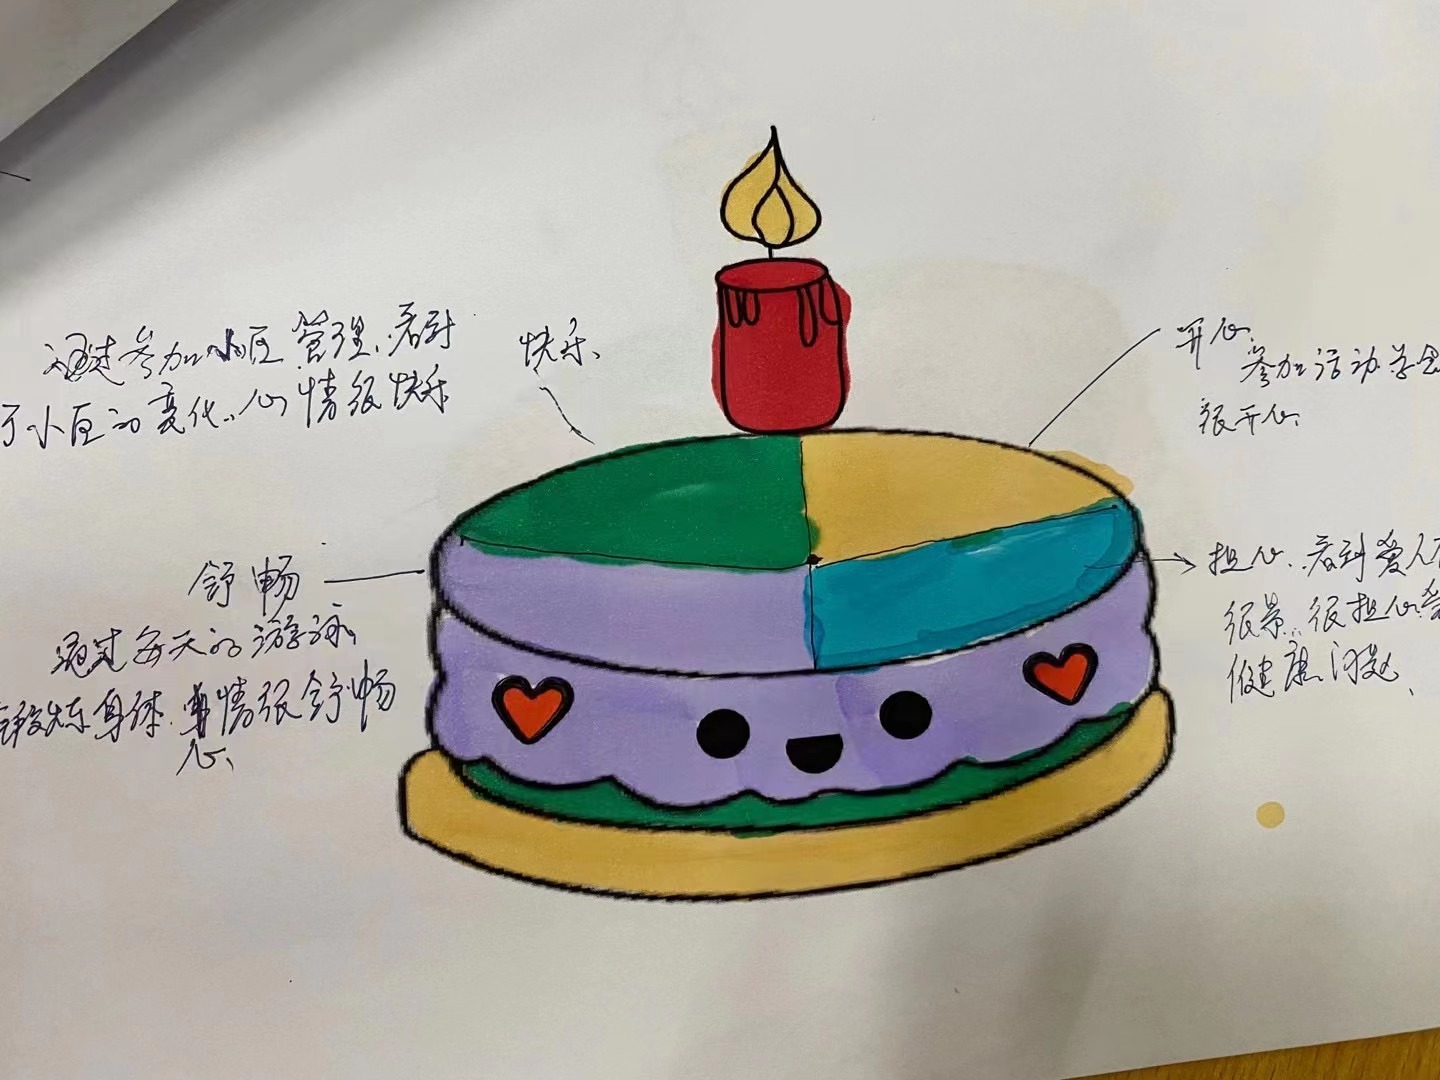 通过参加小区管理、看到
了小区的变化、心情很快乐
快乐、
开心、
参加活动学
很开心、
舒畅
通过每天的游泳、
锻炼身体、情很舒畅
心、
担心、看到爱人
很累、很担心
健康问题、